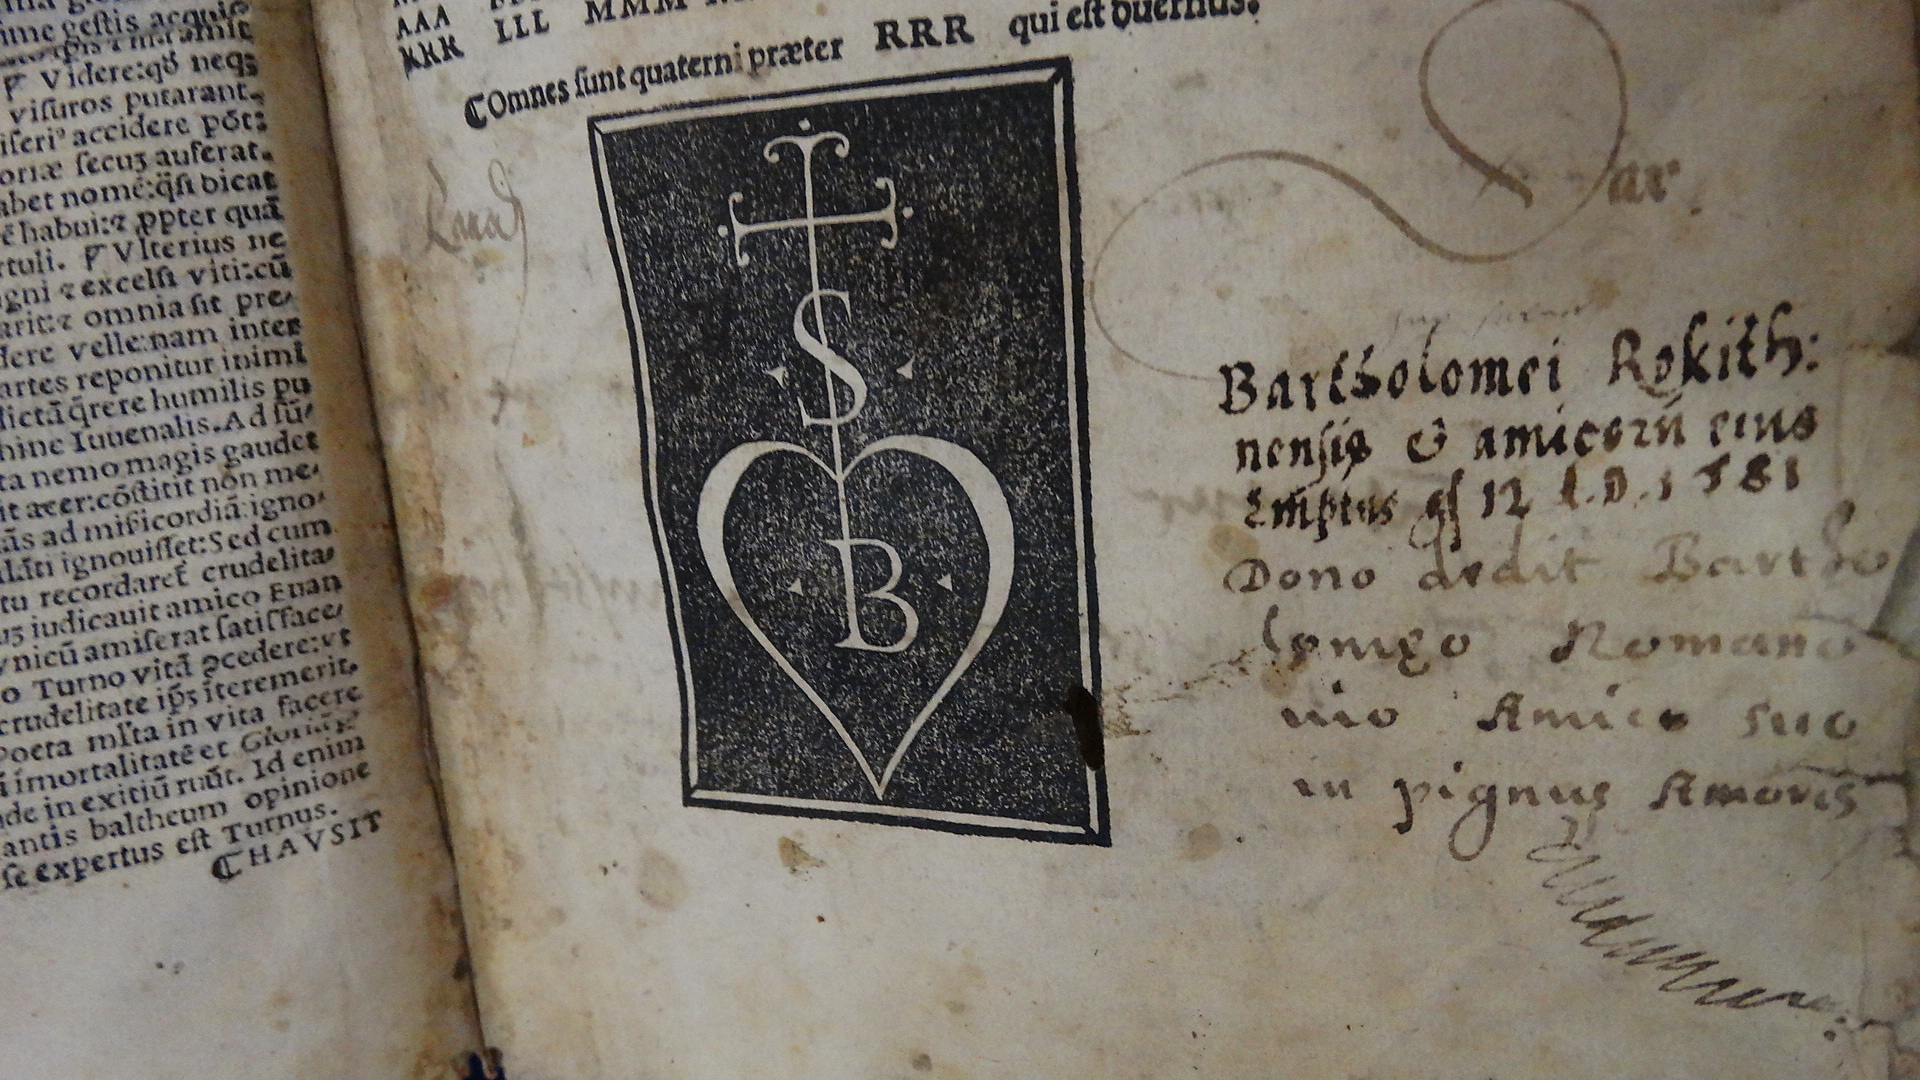 ime gestis acquis
Videre:qđ neqʒ
visuros putarant.
iseriꝰ accidere põt:
oriæ secuʒ auferat.
abet nomē:q̃ſi dicat
ē habui:⁊ ꝓpter quā
rtuli. Vlterius ne
gni ⁊ excelſi viti:cū
arit:⁊ omnia ſit pre
dere velle:nam inter
artes reponitur inimi
dictā q̃rere humilis pu
hine Iuuenalis.Ad ſū
ta nemo magis gaudet
it acer:cōſtitit non me
ās ad miſicordiā:igno
lāti ignouiſſet:Sed cum
tu recordaret crudelita
uʒ iudicauit amico Euan
ynicū amiſerat ſatiſface
o Turno vitā ꝓcedere:vt
crudelitate ip̄s iteremerit.
Poeta mſta in vita facere
i īmortalitatē et Gloriā
nde in exitiū ruūt. Id enim
antis baltheum opinione
ſe expertus eſt Turnus.
HAVSIT
AAA
KKK LLL MMM
Omnes ſunt quaterni præter RRR qui eſt duernus.
S
B
ar.
Bartholomei Rokith:
nensis & amicorū eius
Emptus 12 A.D. 1581
Dono dedit Bartho
lomeo Romano
nio Amico suo
in pignus Amoris